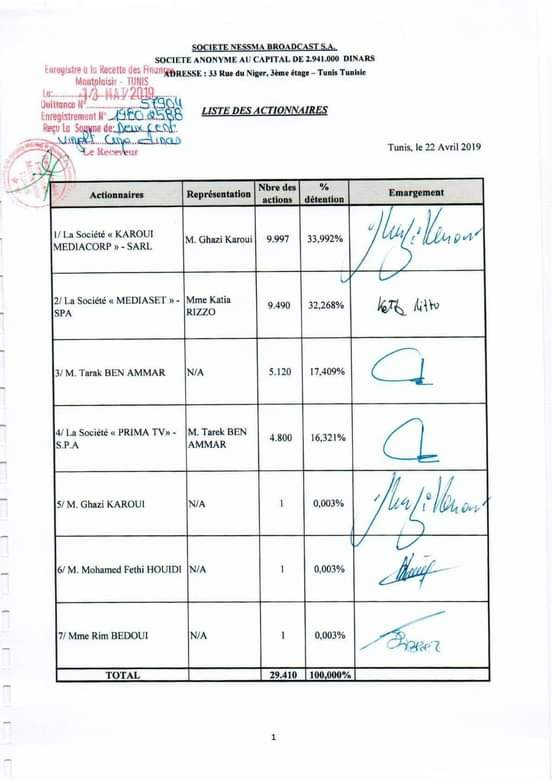 SOCIETE NESSMA BROADCAST S.A.
SOCIETE ANONYME AU CAPITAL DE 2.941.000 DINARS
ADRESSE : 33 Rue du Niger, 3ème étage – Tunis Tunisie
Enregistré à la Recette des Finances
Montplaisir - TUNIS
Le: 13 MAI 2019
Quittance N° 57904
Enregistrement N° 19602588
Reçu La Somme de: Deux cent
vingt cinq dinars
Le Receveur
LISTE DES ACTIONNAIRES
Tunis, le 22 Avril 2019
Actionnaires Représentation Nbre des actions % détention Emargement
1/ La Société « KAROUI MEDIACORP » - SARL M. Ghazi Karoui 9.997 33,992%
2/ La Société « MEDIASET » - SPA Mme Katia RIZZO 9.490 32,268%
3/ M. Tarak BEN AMMAR N/A 5.120 17,409%
4/ La Société « PRIMA TV» - S.P.A M. Tarek BEN AMMAR 4.800 16,321%
5/ M. Ghazi KAROUI N/A 1 0,003%
6/ M. Mohamed Fethi HOUIDI N/A 1 0,003%
7/ Mme Rim BEDOUI N/A 1 0,003%
TOTAL 29.410 100,000%
1